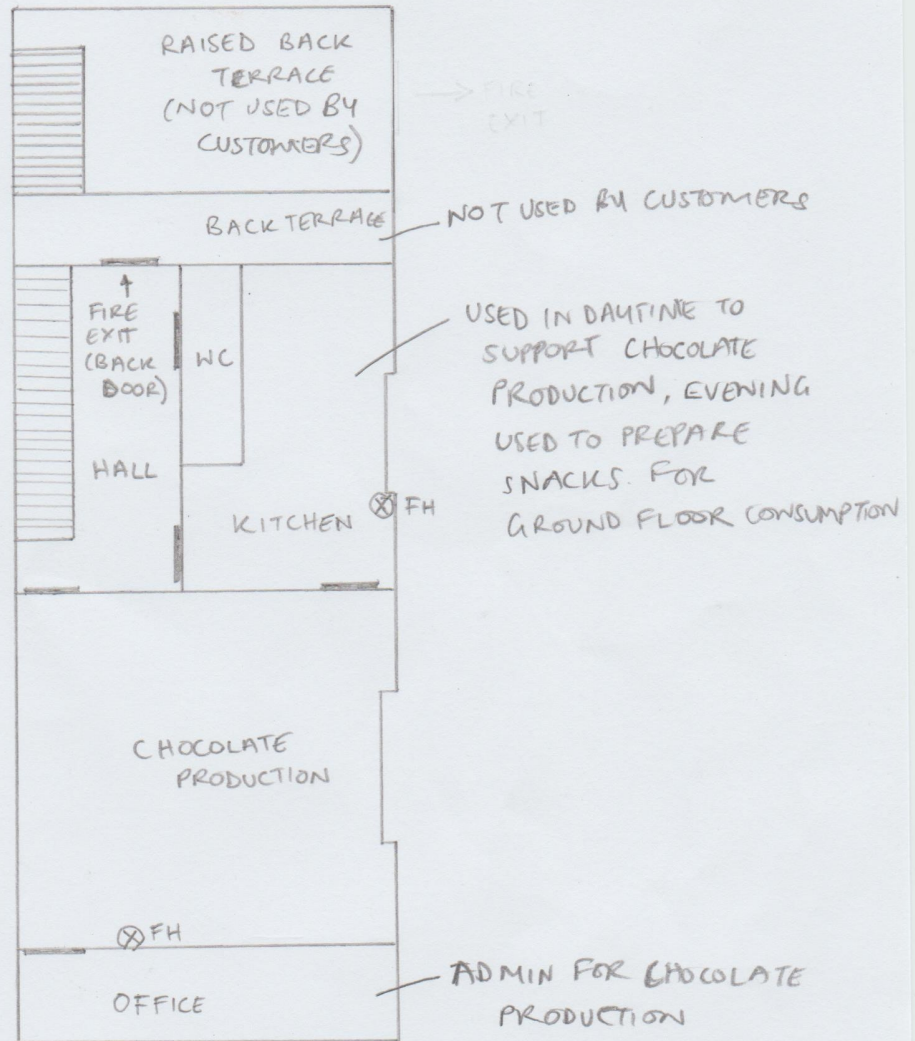 RAISED BACK
TERRACE
(NOT USED BY
CUSTOMERS)
→ FIRE
EXIT
BACK TERRACE
NOT USED BY CUSTOMERS
↑
FIRE
EXIT
(BACK
DOOR)
WC
HALL
KITCHEN
FH
USED IN DAYTIME TO
SUPPORT CHOCOLATE
PRODUCTION, EVENING
USED TO PREPARE
SNACKS. FOR
GROUND FLOOR CONSUMPTION
CHOCOLATE
PRODUCTION
FH
OFFICE
ADMIN FOR CHOCOLATE
PRODUCTION